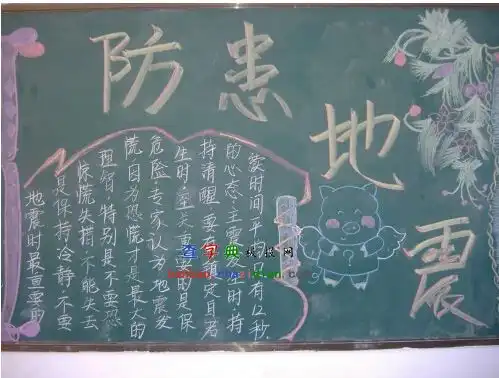 防患
地
震
地震时最重要的
是保持冷静,不要
惊慌失措,不能失去
理智,特别是不要恐
慌,因为恐慌才是最大的
危险,专家认为,地震发
生时,至关重要的是保
持清醒 要有镇定自若
的心态,主震发生时,持
续时间平均只有12秒.
查字典 教程网